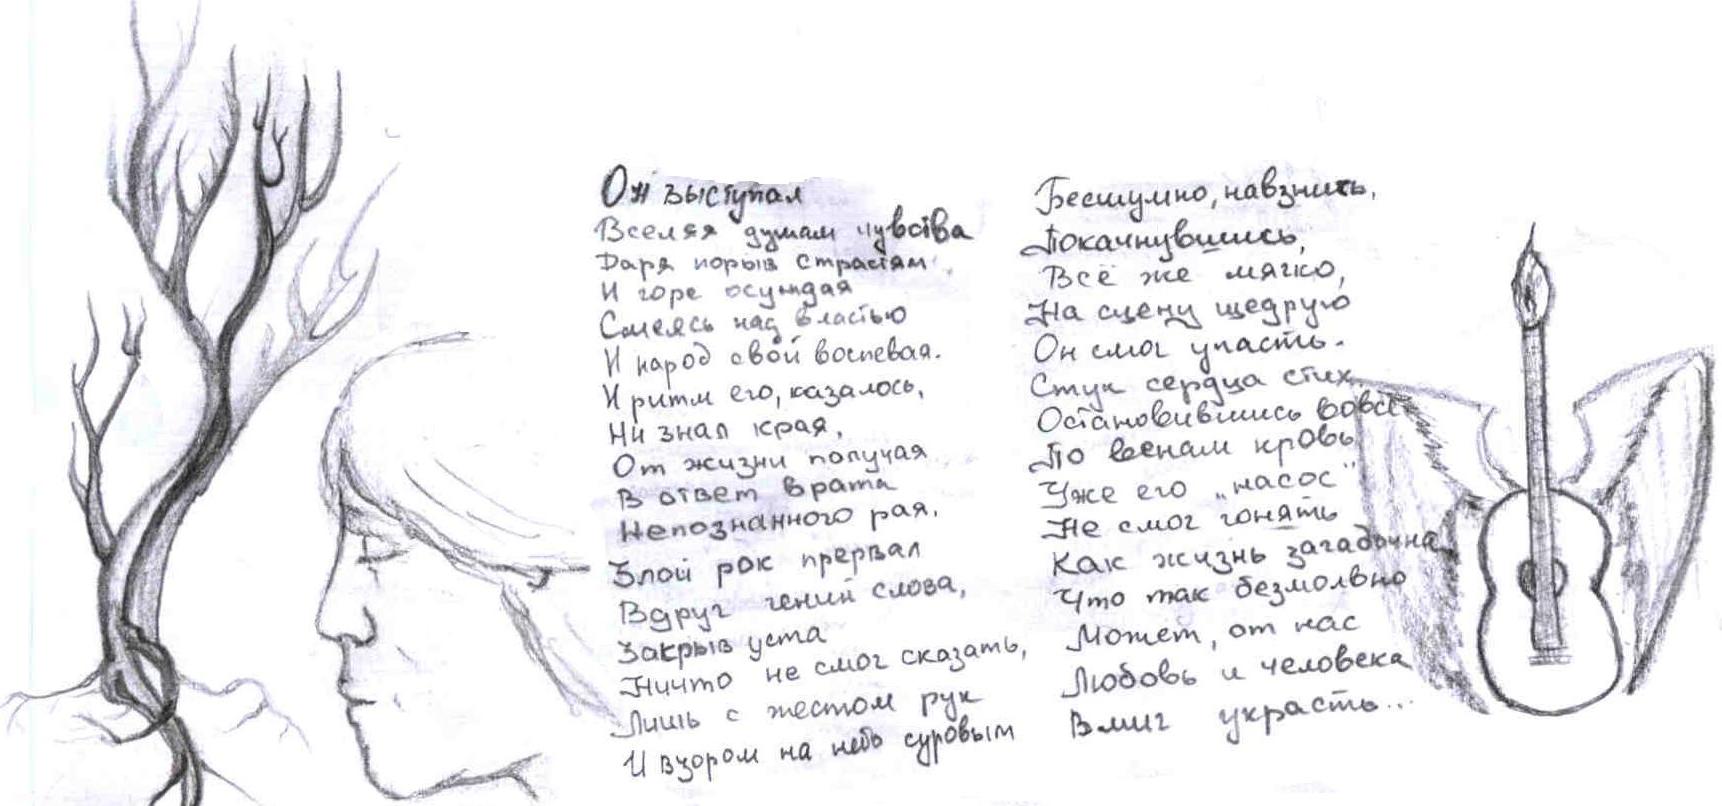 Он выступал
Вселяя думам чувства
Даря порыв страстям
И горе осуждая
Смеясь над властью
И народ свой воспевая.
И ритм его, казалось,
Ни знал края,
От жизни получая
В ответ врата
Непознанного рая.
Злой рок прервал
Вдруг гений слова,
Закрыв уста
Ничто не смог сказать,
Лишь с жестом рук
И взором на небо суровым
Бесшумно, навзничь,
Покачнувшись,
Всё же мягко,
На сцену щедрую
Он смог упасть.
Стук сердца стих,
Остановившись вовсе
По венам кровь
Уже его „насос"
Не смог гонять
Как жизнь загадочна
Что так безмолвно
Может, от нас
Любовь и человека
В миг украсть...